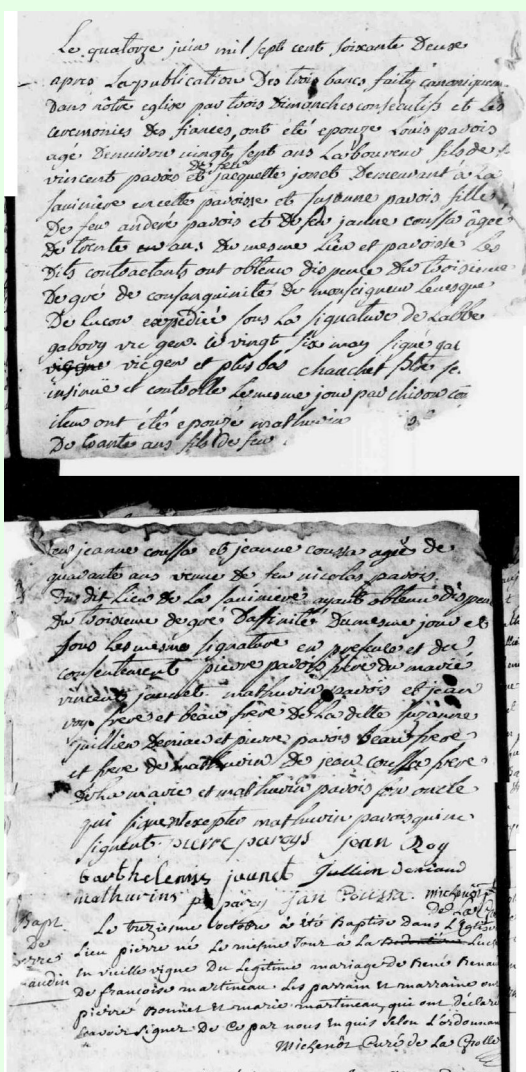 Le quatorze juin mil sept cent soixante Deuse
apres La publication Des trois bancs faites canoniquem
Dans nôtre eglise par trois Dimanches consecutifs et Les
ceremonies des fiances, ont eté epouze Louis pavois
agé Denviron vingty sept ans Laboureur fils de
vincent pavois et de feu jacquette jonet Demeurant a La
saviniere en cette paroisse et susanne pavois fille
De feu anderé pavois et de feu janne coussa âgee
De trente ans Du mesme Lieu et paroisse Les
Dits contractants ont obtenu dispence Du troisieme
Degré de consanguinité de monseigneur Levesque
De Lucon expediée sous La signature de Labbe
gaboury vic gen le vingt six may signe gab
vic gen et plus bas chauchet ptre se
insinüe et controlle Le mesme jour par chison con
item ont étés epouzé mathurin
De trante ans fils de feu
feu jeanne coussa et jeanne coussa agee de
quarante ans veuve de feu nicolas pavois
Du dit Lieu de La saviniere ayant obtenu dispen
Du troisieme degré D'affinité Du mesme jour et
sous Les mesme signature en presence et du
consentement pierre pavois père du marié
vincent jaunet mathurin pavois et jean
roy frere et beau frère de La ditte suzanne
jullien Deniau et pierre pavois beau frere
et frere de mathurin de jean coussa frere
de La mariee et mathurin pavois son oncle
qui signent excepte mathurin pavois qui ne
signent. pierre paroys jean Roy
barthelemy jaunet Jullien Deniaud
mathurins paroy jan Coussa. michenôt
De La
Bapt.
De
Pierre
audin
Le treziesme octobre a été Baptisé Dans L'Eglise
Lieu pierre né Le mesme Jour à La
En vieille vigne Du Legitime mariage de René Renau
De francoise martineau. Les parrain et marraine on
pierre Bonnet et marie martineau, qui ont Déclaré
scavoir signer De Ce par nous Enquis selon L'ordonnan
Michenôt Curé de La Grolle